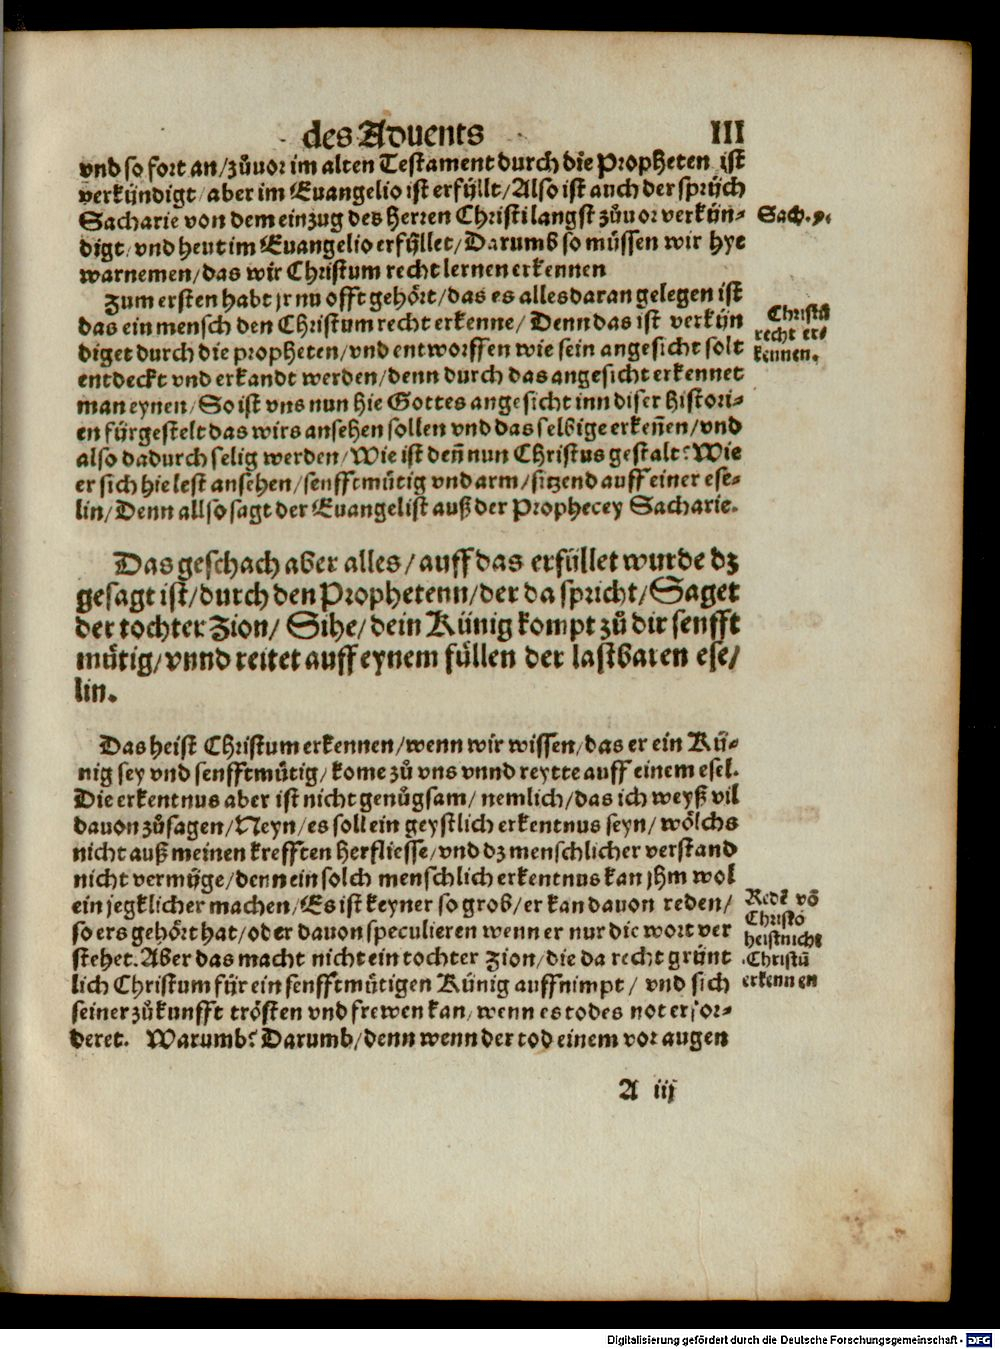 des Aduents III
vnd so fort an/zůuor im alten Testament durch die Propheten ist
verkündigt/aber im Euangelio ist erfüllt/Also ist auch der sprüch
Sacharie von dem einzug des Herren Christi langst zůuor verkün-
Sach. 9.
digt/vnd heut im Euangelio erfüllet/Darumb so müssen wir hye
warnemen/das wir Christum recht lernen erkennen
Zum ersten habt jr nu offt gehört/das es alles daran gelegen ist
das ein mensch den Christum recht erkenne/Denn das ist verkün
Christū
recht er-
kennen.
diget durch die propheten/vnd entworffen wie sein angesicht solt
entdeckt vnd erkandt werden/denn durch das angesicht erkennet
man eynen/So ist vns nun hie Gottes angesicht inn diser histori-
en fürgestelt das wirs ansehen sollen vnd das selbige erkeñen/vnd
also dadurch selig werden/Wie ist deñ nun Christus gestalt? Wie
er sich hie lest ansehen/senfftmütig vnd arm/sitzend auff einer ese-
lin/Denn allso sagt der Euangelist auß der Prophecey Sacharie.
Das geschach aber alles/auff das erfüllet wurde dz
gesagt ist/durch den Prophetenn/der da spricht/Saget
der tochter Zion/Sihe/dein Künig kompt zů dir senfft
mütig/vnnd reitet auff eynem füllen der lastbaren ese/
lin.
Das heist Christum erkennen/wenn wir wissen/das er ein Kü-
nig sey vnd senfftmütig/kome zů vns vnnd reytte auff einem esel.
Die erkentnus aber ist nicht genůgsam/nemlich/das ich weyß vil
dauon zůsagen/Neyn/es soll ein geystlich erkentnus seyn/wölchs
nicht auß meinen krefften herfliesse/vnd dz menschlicher verstand
nicht vermüge/denn ein solch menschlich erkentnus kan jhm wol
ein jegklicher machen/Es ist keyner so grob/er kan dauon reden/
Redē vō
Christo
heist nicht
Christū
erkennen
so ers gehört hat/oder dauon speculieren wenn er nur die wort ver
stehet. Aber das macht nicht ein tochter Zion/die da recht grünt
lich Christum für ein senfftmütigen Künig auffnimpt/vnd sich
seiner zůkunfft trösten vnd frewen kan/wenn es todes not erfor-
deret. Warumb? Darumb/denn wenn der tod einem vor augen
A iij
Digitalisierung gefördert durch die Deutsche Forschungsgemeinschaft - DFG